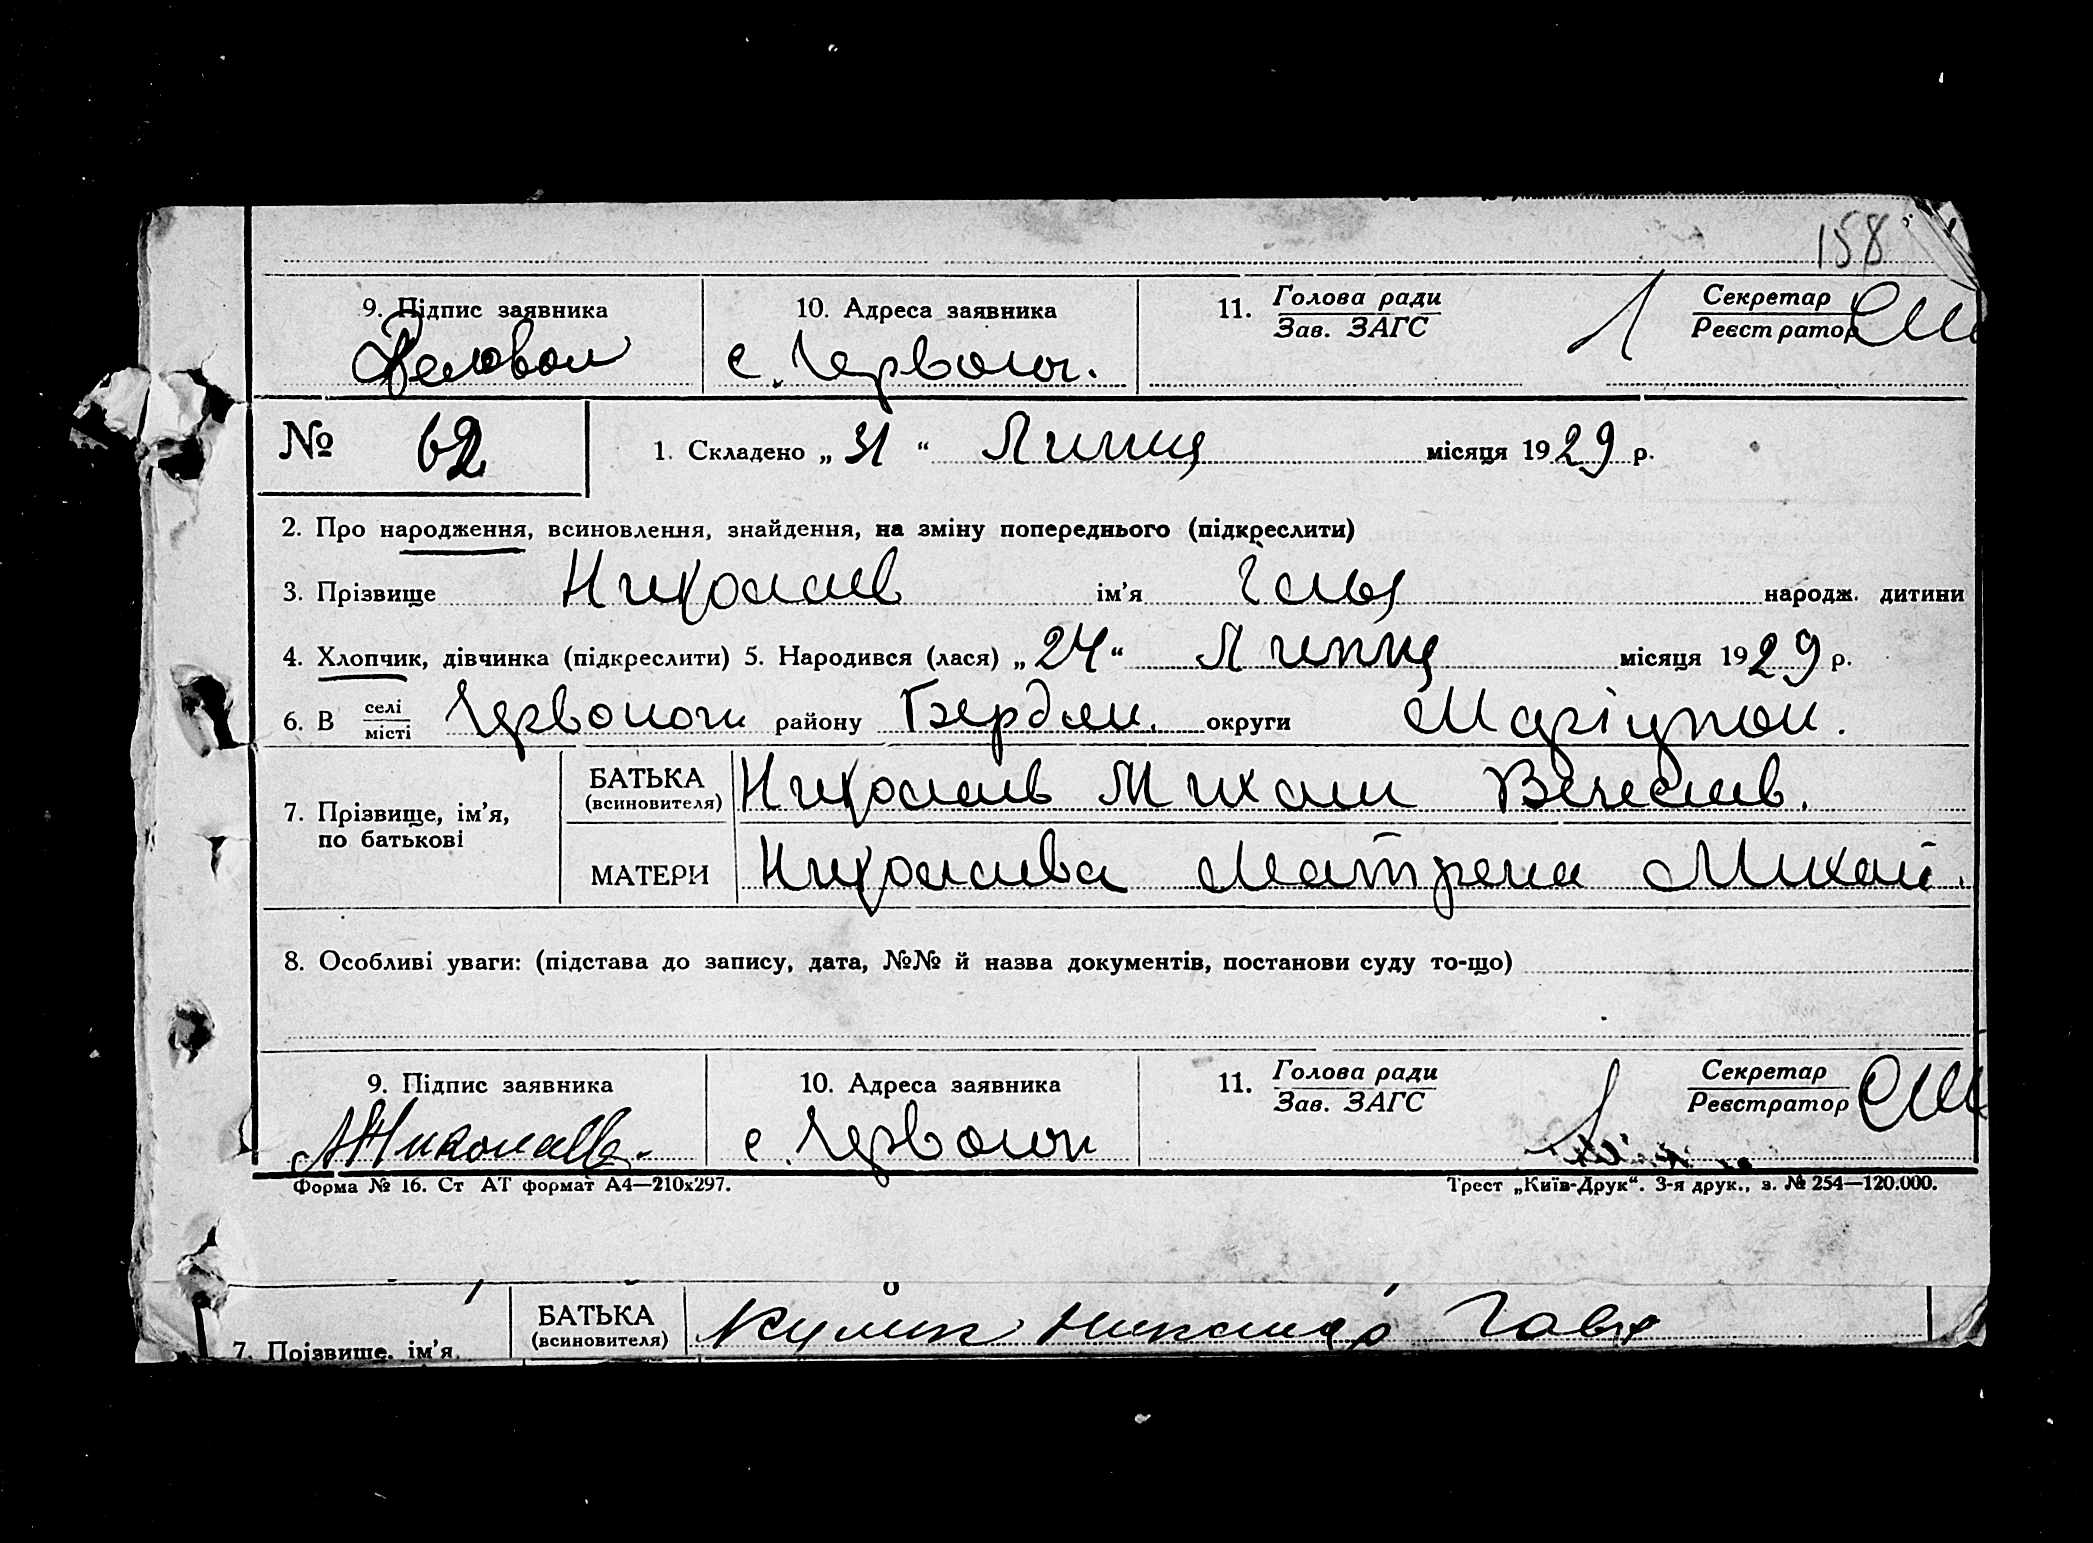 158
9. Підпис заявника 10. Адреса заявника 11. Голова ради Секретар
Зав. ЗАГС Реєстратор
с. Червоноп.
№ 62 1. Складено „31“ Липня місяця 1929 р.
2. Про народження, всиновлення, знайдення, на зміну попереднього (підкреслити)
3. Прізвище Николаєв ім’я Ілья народж. дитини
4. Хлопчик, дівчинка (підкреслити) 5. Народився (лася) „24“ Липня місяця 1929 р.
6. В селі Червоноп району Бердян. округи Маріупол.
місті
БАТЬКА Николаев Михаил Вечеслав.
(всиновителя)
7. Прізвище, ім’я,
по батькові
МАТЕРИ Николаева Матрена Михай.
8. Особливі уваги: (підстава до запису, дата, №№ й назва документів, постанови суду то-що)
9. Підпис заявника 10. Адреса заявника 11. Голова ради Секретар
Зав. ЗАГС Реєстратор
МНиколаев. с. Червоноп
Форма № 16. Ст АТ формат А4—210х297. Трест „Київ-Друк“. 3-я друк., з. № 254—120.000.
БАТЬКА Кулик Николай Гавр
(всиновителя)
7. Прізвище, ім’я,